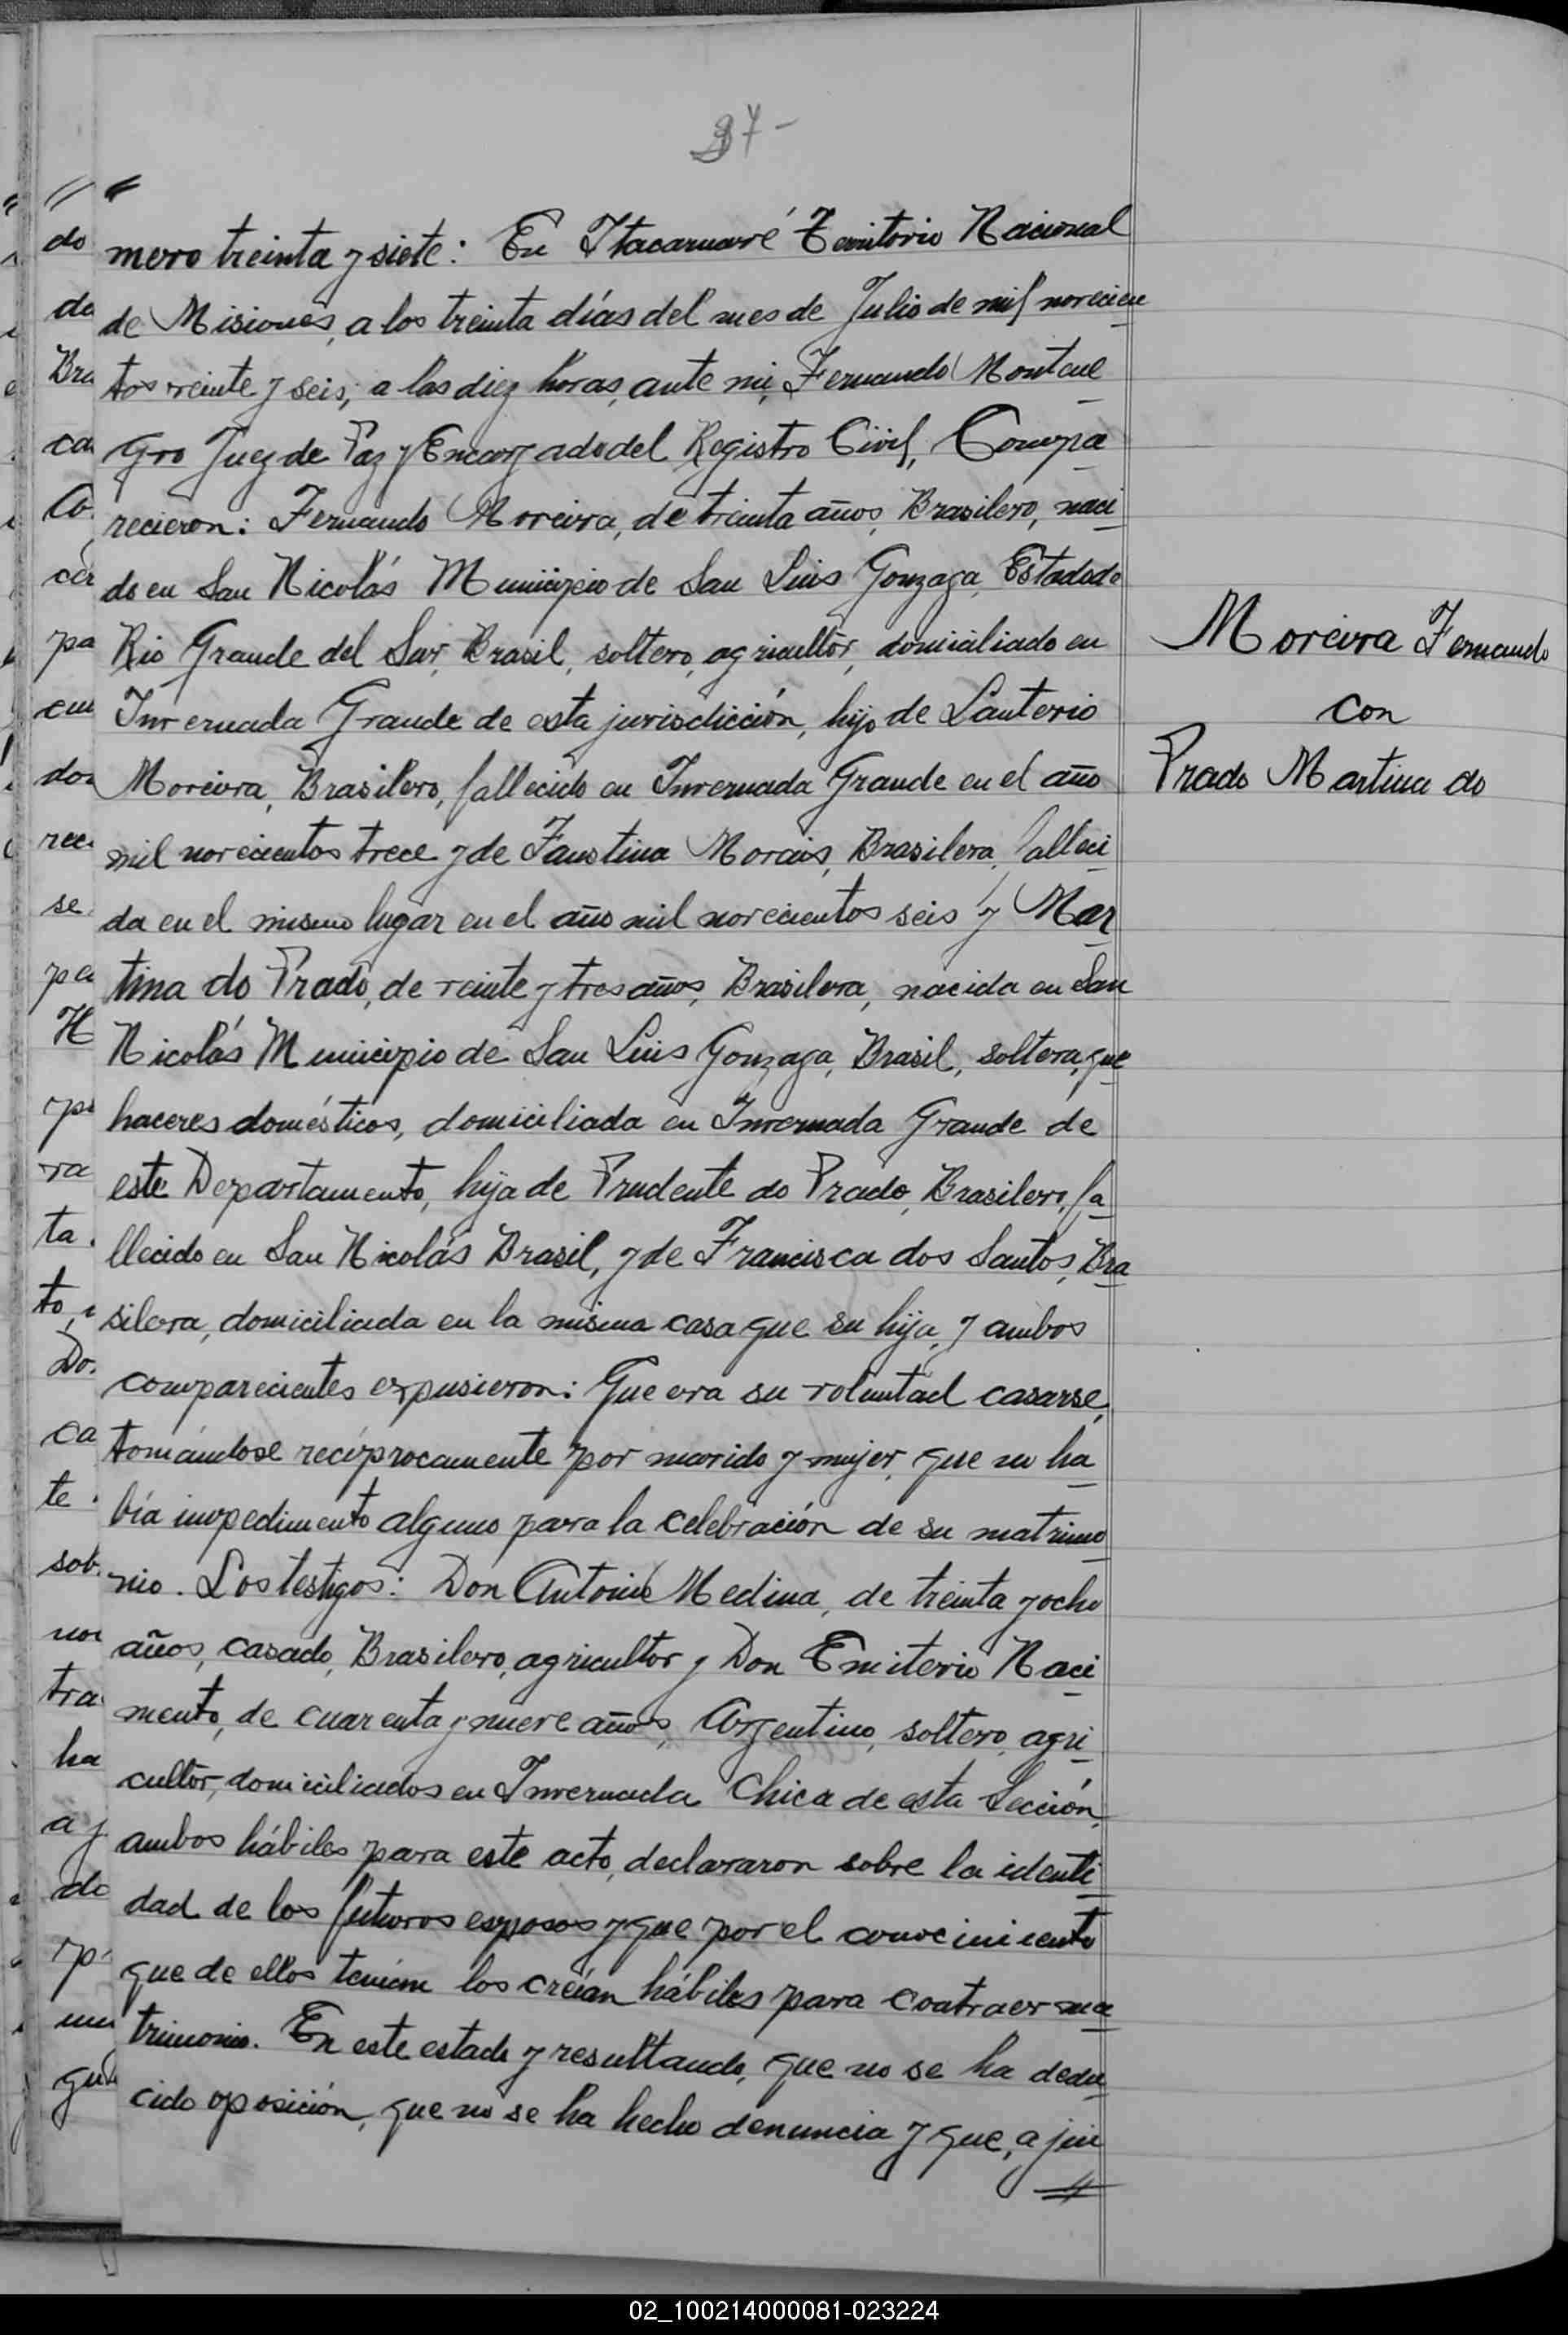 37-
mero treinta y siete: En Itacaruaré Territorio Nacional
de Misiones, a los treinta días del mes de Julio de mil novecien
tos veinte y seis, a las diez horas, ante mi, Fernando Montene
gro Juez de Paz y Encargado del Registro Civil, Compa
recieron: Fernando Moreira, de treinta años, Brasilero, naci
do en San Nicolás Municipio de San Luis Gonzaga, Estado de
Rio Grande del Sur, Brasil, soltero, agricultor, domiciliado en
Invernada Grande de esta jurisdicción, hijo de Lauterio
Moreira, Brasilero, fallecido en Invernada Grande en el año
mil novecientos trece y de Faustina Morais, Brasilera, falleci
da en el mismo lugar en el año mil novecientos seis y Mar
tina do Prado, de veinte y tres años, Brasilera, nacida en San
Nicolás Municipio de San Luis Gonzaga, Brasil, soltera, que
haceres domésticos, domiciliada en Invernada Grande de
este Departamento, hija de Prudente do Prado, Brasilero, fa
llecido en San Nicolás Brasil, y de Francisca dos Santos, Bra
silera, domiciliada en la misma casa que su hija, y ambos
comparecientes expusieron: Que era su voluntad casarse,
tomándose recíprocamente por marido y mujer, que no ha
bía impedimento alguno para la celebración de su matrimo
nio. Los testigos: Don Antonio Medina, de treinta y ocho
años, casado, Brasilero, agricultor y Don Emiterio Naci
mento, de cuarenta y nueve años, Argentino, soltero, agri
cultor, domiciliados en Invernada Chica de esta Sección,
ambos hábiles para este acto, declararon sobre la identi
dad de los futuros esposos y que por el conocimiento
que de ellos tenían los creían hábiles para contraer ma
trimonio. En este estado y resultando, que no se ha dedu
cido oposición, que no se ha hecho denuncia y que, a jui
Moreira Fernando
con
Prado Martina do
02_100214000081-023224